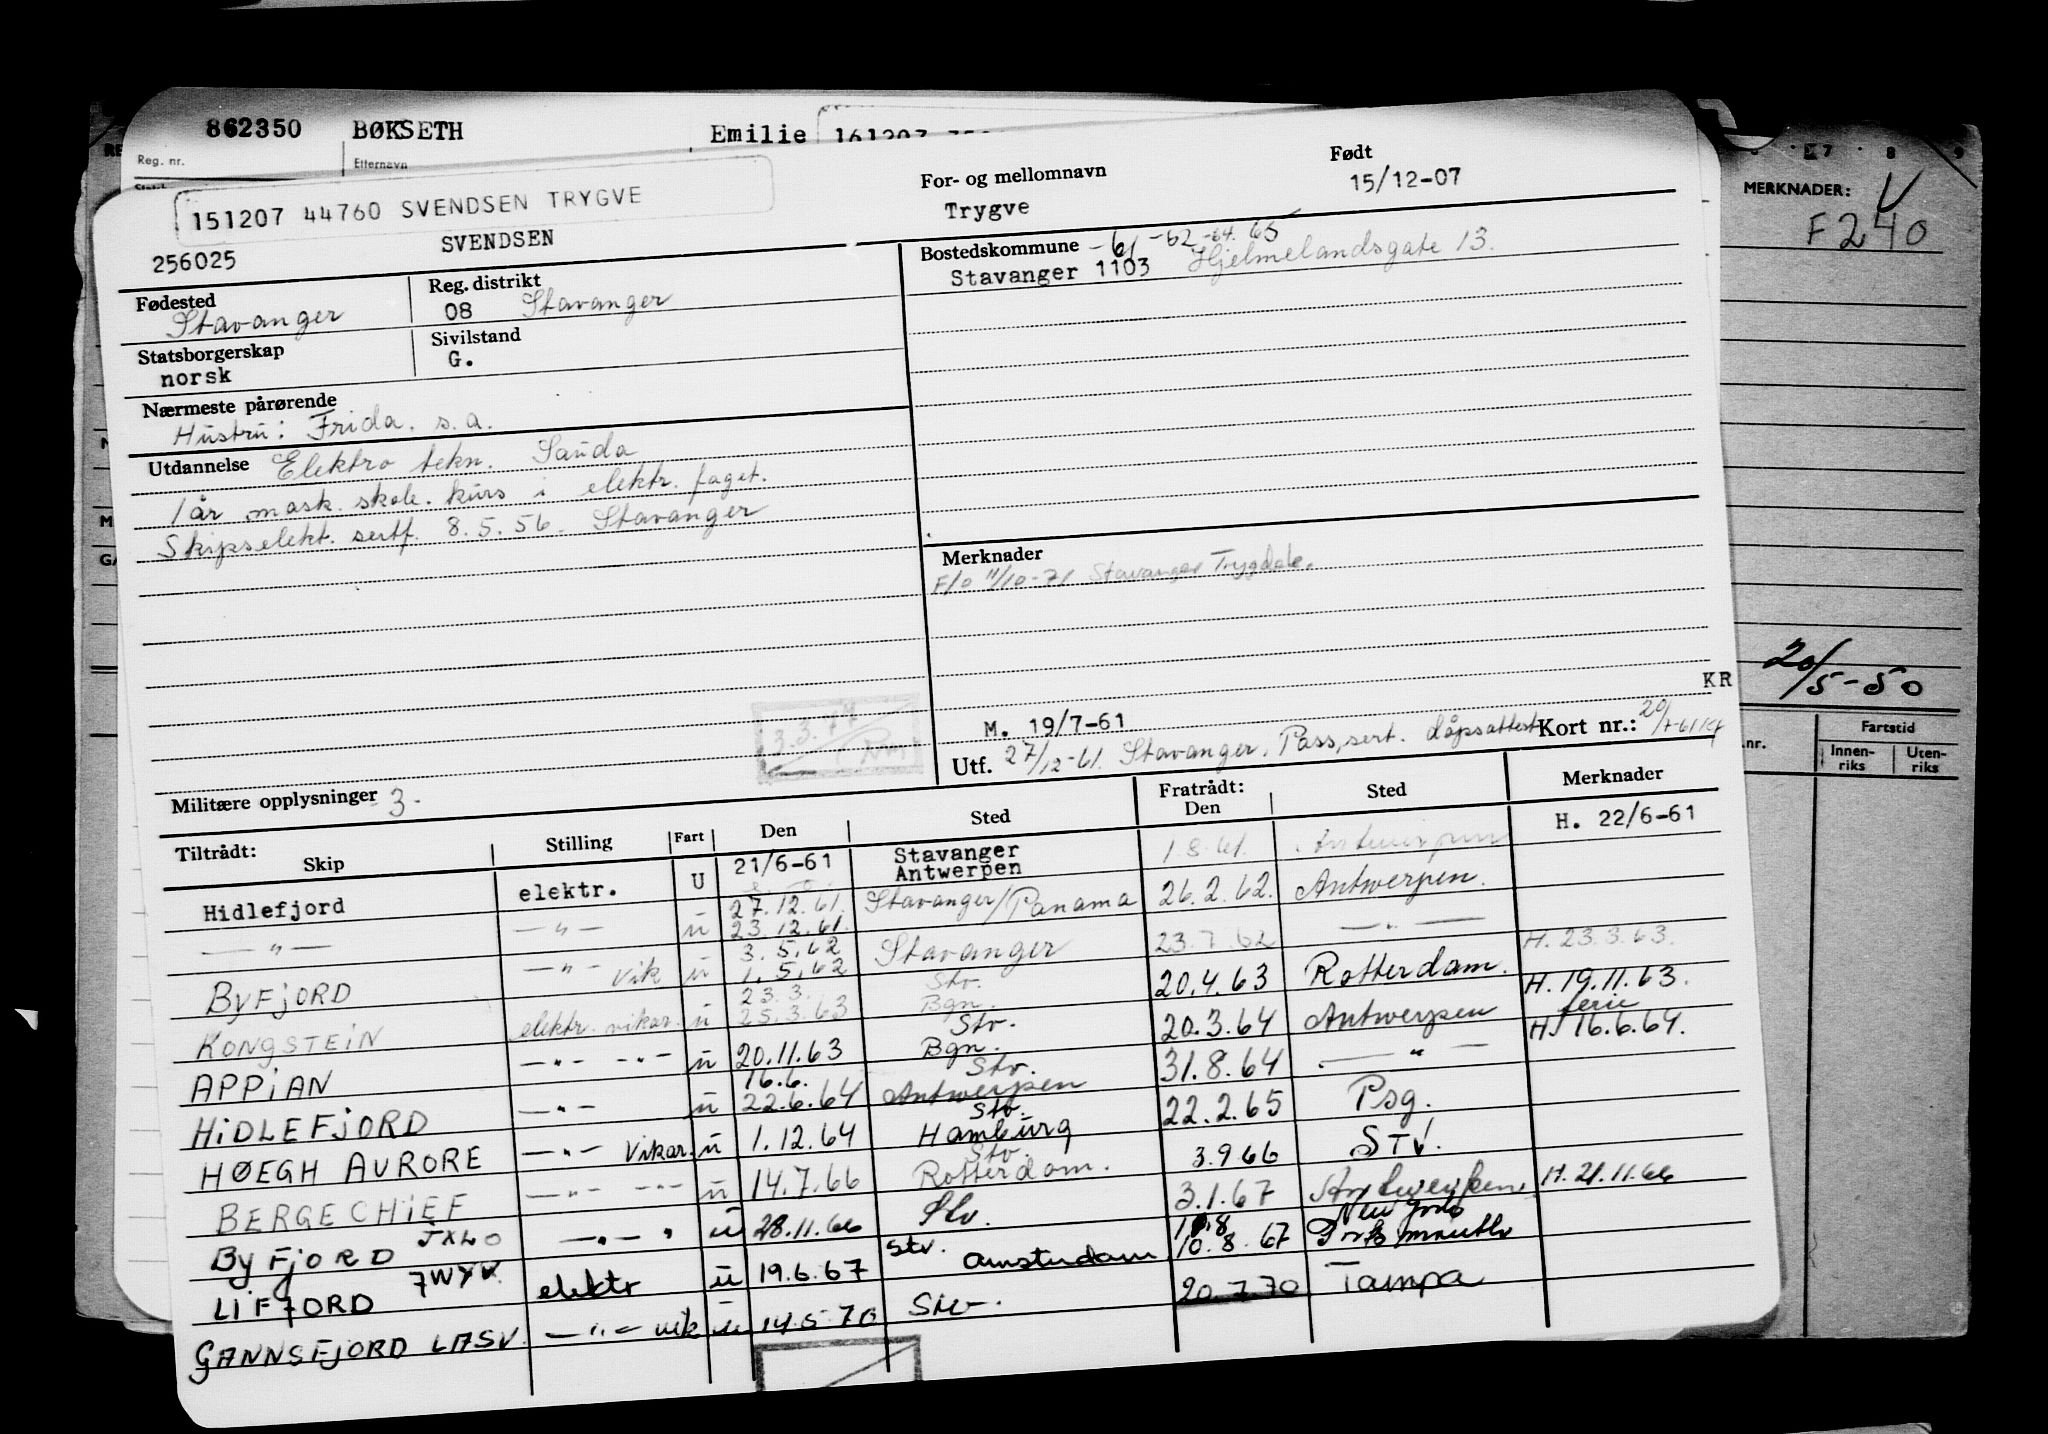 862350 BØKSETH Emilie
Reg. nr. Etternavn
MERKNADER: V
F240
151207 44760 SVENDSEN TRYGVE
256025 SVENDSEN
For- og mellomnavn
Trygve
Født
15/12-07
Fødested
Stavanger
Reg. distrikt
08 Stavanger
Bostedskommune -61 -62 -64. 65
Stavanger 1103 Hjelmelandsgate 13.
Statsborgerskap
norsk
Sivilstand
G.
Nærmeste pårørende
Hustru: Frida. s.a.
Utdannelse Elektro tekn. Sauda
1 år mask. skole. kurs i elektr. faget.
Skipselekt. sertf. 8.5.56. Stavanger
Merknader
F/o 11/10-71 Stavanger Trygdek.
20/5-50
KR
3.3.77
M. 19/7-61
Utf. 27/12-61. Stavanger. Pass, sert. Låpsattest Kort nr.: 20/7-61
Fartstid
Innen-riks Uten-riks
Militære opplysninger 3.
Tiltrådt: Skip Stilling Fart Den Sted Fratrådt: Den Sted Merknader
Hidlefjord elektr. U 21/6-61 Stavanger Antwerpen 1.8.61. Antwerpen H. 22/6-61
—"— —"— ü 27.12.61. 23.12.61. Stavanger/Panama 26.2.62. Antwerpen.
BYFJORD —"— vik ü 3.5.62 1.5.62 Stavanger 23.7.62 —"—
KONGSTEIN elektr. vikar. ü 23.3. 25.3.63 Stv. Bgn. 20.4.63 Rotterdam. H. 23.3.63.
APPIAN —"— —"— ü 20.11.63 Stv. Bgn. 20.3.64 Antwerpen H. 19.11.63. ferie
HIDLEFJORD —"— ü 16.6. 22.6.64 Stv. Antwerpen 31.8.64 —"— H. 16.6.64.
HØEGH AURORE —"— Vikar. ü 1.12.64 Stv. Hamburg 22.2.65 Psg.
BERGECHIEF —"— —"— ü 14.7.66 Stv. Rotterdam. 3.9.66 STV.
BYFJORD JXLO —"— " ü 28.11.66 Stv. 3.1.67 Antwerpen H. 21.11.66
LIFJORD elektr ü 19.6.67 Stv. Amsterdam 10.8.67 New York
GANNSFJORD LASV. —"— vik ü 14.5.70 Stv. 20.7.70 Tampa